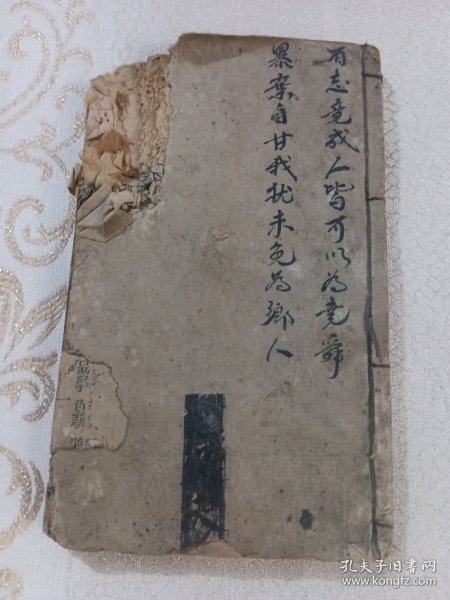 有志竟成人皆可以為堯舜
暴棄自甘我犹未免為鄉人
孔夫子旧书网
www.kongfz.com